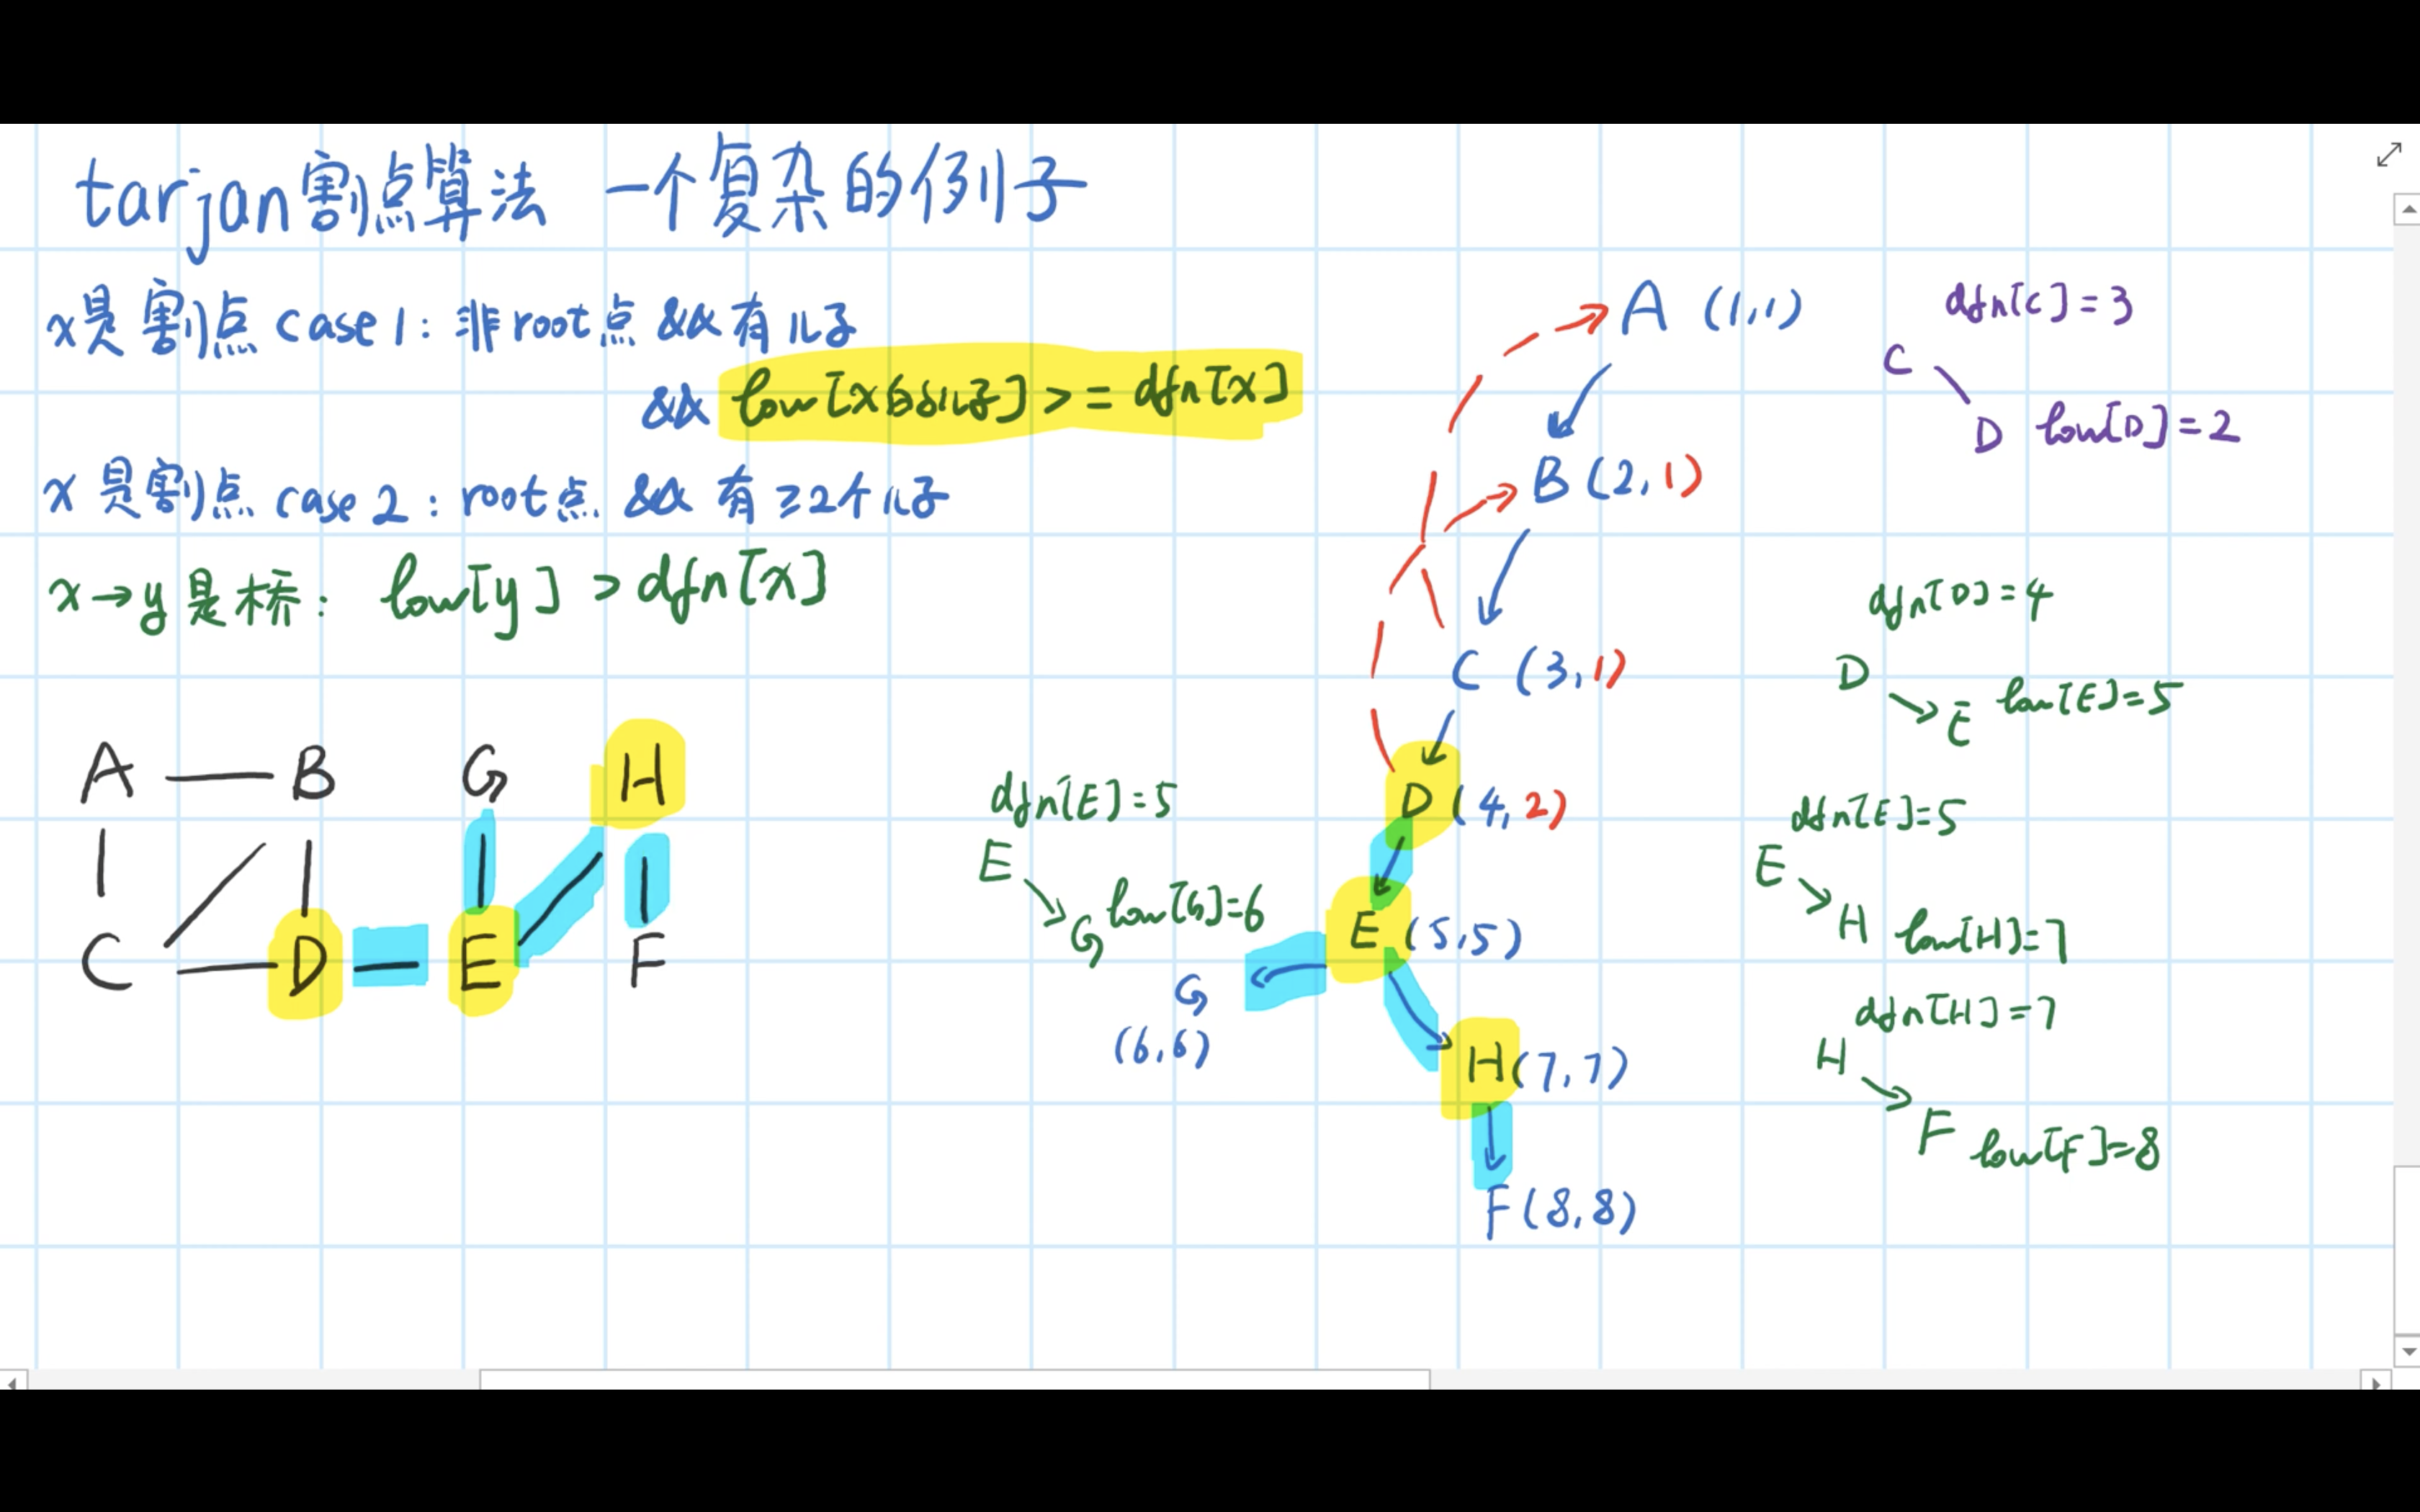 tarjan割点算法 一个复杂的例子
x是割点 case 1: 非root点 && 有儿子
&& low[x的儿子] >= dfn[x]
x 是割点 case 2: root点 && 有≥2个儿子
x→y是桥: low[y] > dfn[x]
A B G H
C D E F
A (1,1)
B (2,1)
C (3,1)
D (4,2)
E (5,5)
G
(6,6)
H (7,7)
F (8,8)
dfn[E]=5
E
G low[G]=6
dfn[C]=3
C
D low[D]=2
dfn[D]=4
D
E low[E]=5
dfn[E]=5
E
H low[H]=7
dfn[H]=7
H
F low[F]=8